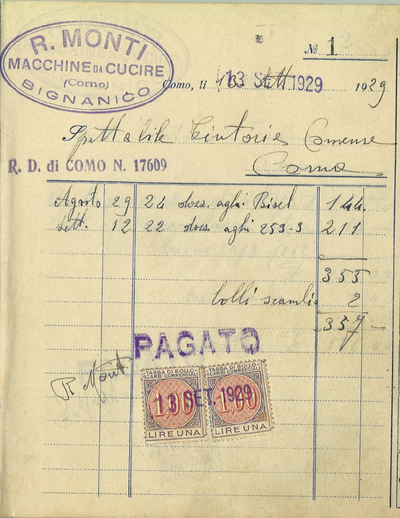 R. MONTI
MACCHINE DA CUCIRE
(Como)
BIGNANICO
№ 1
Como, li 13 Sett 1929
13 SET 1929
Spettabile Tintorie Comense
Como
R. D. di COMO N. 17609
Agosto 29 24 dozz. aghi Bisel 144.
Sett. 12 22 dozz. aghi 253-3 211
355
bolli scambio 2
357 –
PAGATO
R Monti
TASSA DI BOLLO SCAMBI COMMERCIALI TASSA DI BOLLO SCAMBI COMMERCIALI
1,00 1,00
13 SET 1929
LIRE UNA LIRE UNA